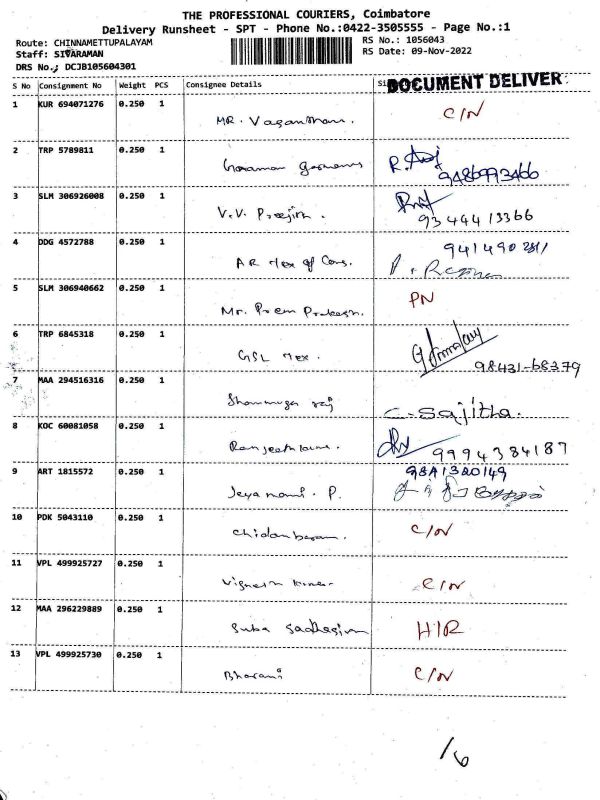 THE PROFESSIONAL COURIERS, Coimbatore
Delivery Runsheet - SPT - Phone No.:0422-3505555 - Page No.:1
Route: CHINNAMETTUPALAYAM
Staff: SIVARAMAN
DRS No.; DCJB105604301
RS No.: 1056043
RS Date: 09-Nov-2022
S No Consignment No Weight PCS Consignee Details
DOCUMENT DELIVER
1 KUR 694071276 0.250 1 MR. Vasanthan. C/N
2 TRP 5789811 0.250 1
3 SLM 306926008 0.250 1 V.V. Preejith. 9344413366
4 DDG 4572788 0.250 1 AR Tex of Cons.
5 SLM 306940662 0.250 1 Mr. Prem Prakash. PN
6 TRP 6845318 0.250 1 GSL Tex. 98431-68379
7 MAA 294516316 0.250 1 Shanmuga raj C-Sajitha.
8 KOC 60081058 0.250 1 9994384187
9 ART 1815572 0.250 1 Jeyamani. P.
10 PDK 5043110 0.250 1 Chidanbaram. C/N
11 VPL 499925727 0.250 1 Vignesh kumar C/N
12 MAA 296229889 0.250 1 Suba Sadhasivam H/R
13 VPL 499925730 0.250 1 Bharani C/N